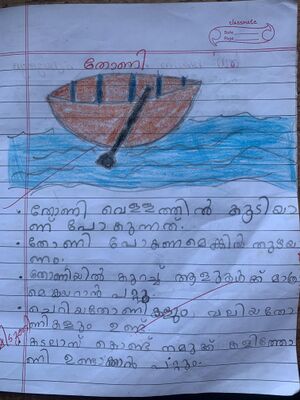 classmate
Date
Page
തോണി
• തോണി വെള്ളത്തിൽ കൂടിയാ
ണ് പോകുന്നത്.
• തോണി പോകണമെങ്കിൽ തുഴയ
ണം.
• തോണിയിൽ കുറച്ച് ആളുകൾക്ക് മാത്ര
മെ കയറാൻ പറ്റൂ.
• ചെറിയതോണികളും വലിയതോ
ണികളും ഉണ്ട്
• കടലാസ് കൊണ്ട് നമുക്ക് കളിത്തോ
ണി ഉണ്ടാക്കാൻ പറ്റും.